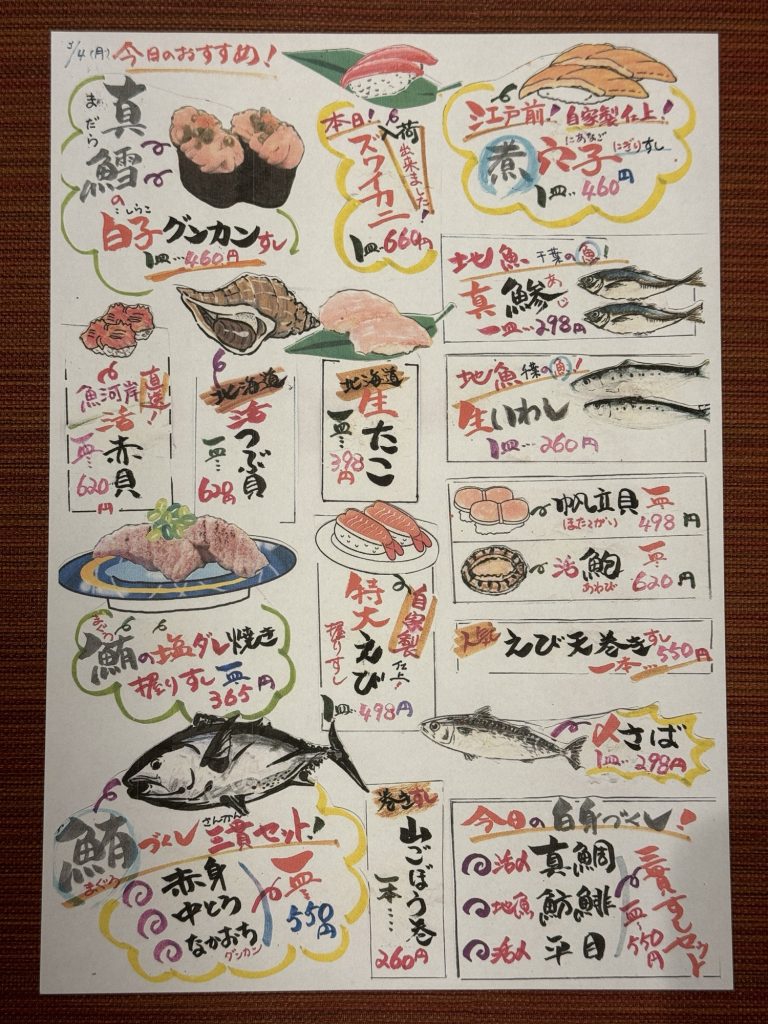 3/4(月) 今日のおすすめ!
まだら
真鱈の
しらこ
白子グンカンすし
1皿…460円
本日!入荷出来ました!
ズワイカニ
1皿…660円
江戸前!自家製仕上!
にあなご
煮穴子にぎりすし
1皿…460円
地魚 千葉の魚!
あじ
真鯵
一皿…298円
地魚 千葉の魚!
生いわし
1皿…260円
魚河岸直送!
活赤貝
一皿…620円
北海道
活つぶ貝
一皿…620円
北海道
生たこ
一皿…398円
帆立貝 一皿
ほたてがい 498円
活鮑 一皿
あわび 620円
まぐろ
鮪の塩ダレ焼き
握りすし 一皿
365円
自家製仕上!
特大えび
握りすし
1皿…498円
人気 えび天巻きすし
一本…550円
〆さば
1皿…298円
さんかん
鮪づくし三貫セット!
まぐろ
赤身
中とろ
なかおち
グンカン
一皿…550円
巻きすし
山ごぼう巻
一本…260円
今日の白身づくし!
活〆 真鯛
地魚 魴鮄
活〆 平目
三貫すしセット
一皿…550円